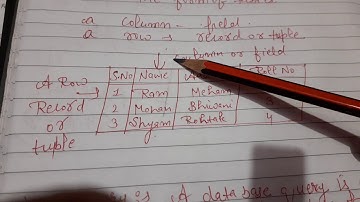 a column - field.
a row → record or tuple
or field
A Row
Record
or
tuple
S.No Name Roll No
1 Ram Meham
2 Mohan Bhiwani
3 Shyam Rohtak 4
A database query is